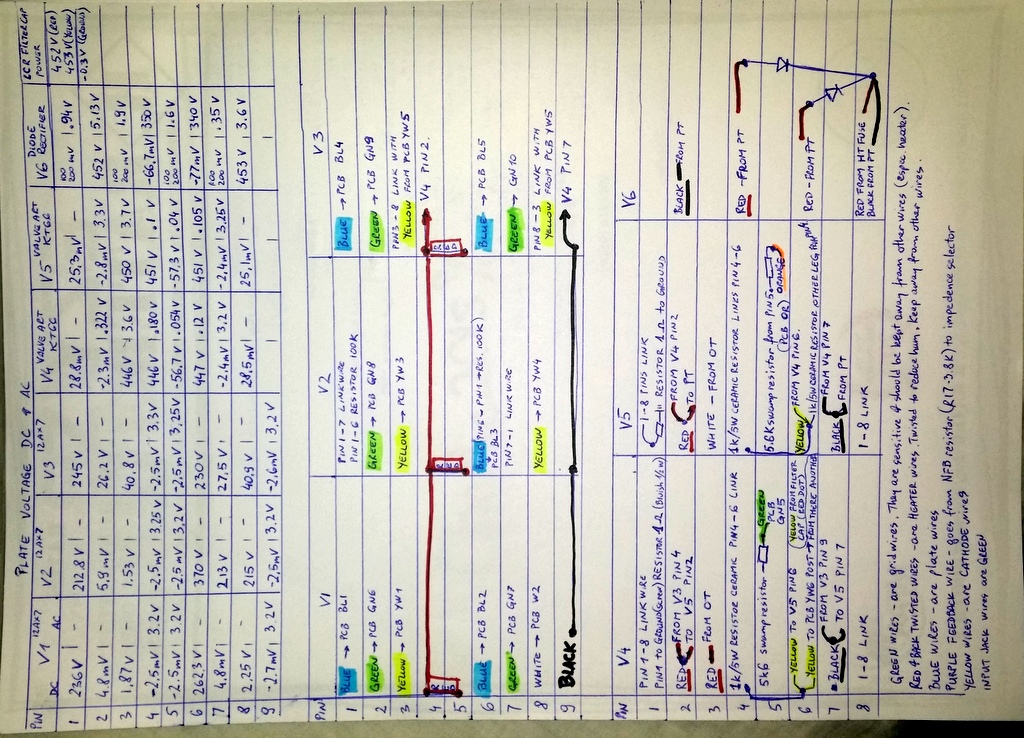 PLATE VOLTAGE DC & AC
PIN V1 12AX7 V2 12AX7 V3 12AX7 V4 VALVE ART KT66 V5 VALVE ART KT66 V6 DIODE RECTIFIER LCR FILTER CAP POWER
DC AC
452 V (RED)
453 V (YELLOW)
-0.3 V (GROUND)
1 236V - 212.8V - 245V - 28.8mV - 25,3mV - 100 200 mV 1.94V
2 4.8mV - 5,9mV - 26.2V - -2.3mV 1.322V -2.8mV 3.3V 452V 5.13V
3 1,87V - 1.53V - 40.8V - 446V 3.6V 450V 3.7V 100 200 mV 1.9V
4 -2.5mV 3.2V -2.5mV 3.25V -2.5mV 3.3V 446V .180V 451V .1V -66.7mV 350V
5 -2.5mV 3.2V -2.5mV 3,2V -2.5mV 3,25V -56.7V .054V -57.3V .04V 100 200 mV 1.6V
6 262.3V - 370V - 230V - 447V .12V 451V .105V -77mV 340V
7 4,8mV - 213V - 27.5V - -2.4mV 3,2V -2.4mV 3,25V 100 200 mV .35V
8 2,25V - 215V - 40,9V - 28.5mV - 25,1mV - 453V 3.6V
9 -2.7mV 3.2V -2,5mV 3,2V -2.6mV 3,2V
PIN V1 V2 V3
1 BLUE → PCB BL1 PIN 1-7 LINK WIRE BLUE → PCB BL4
PIN 1-6 RESISTOR 100K
2 GREEN → PCB GN6 GREEN → PCB GN8 GREEN → PCB GN9
3 YELLOW → PCB YW1 YELLOW → PCB YW3 PIN 3-8 LINK WITH
YELLOW FROM PCB YW5
4 V4 PIN 2.
5 RED RED RED
6 BLUE → PCB BL2 BLUE PIN 6 - PIN 1 → RES. 100K) BLUE → PCB BL5
PCB BL3
7 GREEN → PCB GN7 PIN 7-1 LINK WIRE GREEN → GN10
8 WHITE → PCB W2 YELLOW → PCB YW4 PIN 8-3 LINK WITH
YELLOW FROM PCB YW5
9 BLACK V4 PIN 7
PIN V4 V5 V6
1 PIN 1-8 LINK WIRE 1-8 PINS LINK
PIN 1 TO GROUND RESISTOR 1Ω RESISTOR 1Ω TO GROUND
2 RED FROM V3 PIN 4 RED FROM V4 PIN 2 BLACK - FROM PT
TO V5 PIN 2 TO PT
3 RED - FROM OT WHITE - FROM OT
4 1K/5W RESISTOR CERAMIC PIN 4-6 LINK 1K/5W CERAMIC RESISTOR LINES PIN 4-6 RED - FROM PT
5 5K6 swamp resistor GREEN PCB GN5 5.6K swamp resistor from PIN 5 (PCB OR) ORANGE
6 YELLOW TO V5 PIN 6 (YELLOW FROM FILTER CAP (RED DOT) YELLOW FROM V4 PIN 6. RED - FROM PT
YELLOW TO PCB YW6 POST → FROM THERE ANOTHER 1K/5W CERAMIC RESISTOR, OTHER LEG FROM PIN 4
7 BLACK FROM V3 PIN 9 BLACK FROM V4 PIN 7
TO V5 PIN 7 FROM PT
8 1-8 LINK 1-8 LINK RED FROM HT FUSE
BLACK FROM PT
GREEN WIRES - are grid wires. They are sensitive & should be kept away from other wires (espec. heater)
RED & BACK TWISTED WIRES - are HEATER wires. Twisted to reduce hum. Keep away from other wires.
BLUE WIRES - are plate wires
PURPLE FEEDBACK WIRE - goes from NFB resistor (R17 - 3.8K) to impedence selector
YELLOW WIRES - are CATHODE wires
INPUT JACK wires are GREEN